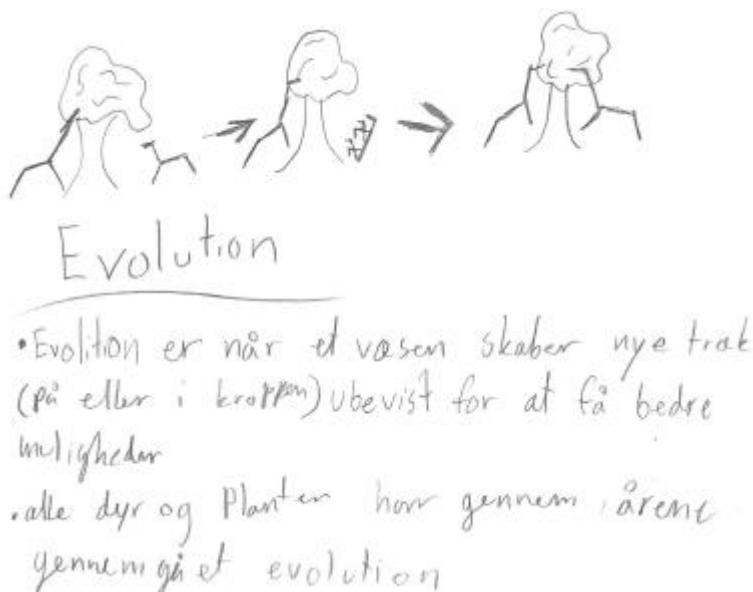 Evolution
•Evolition er når et væsen skaber nye træk
(på eller i kroppen) ubevist for at få bedre
muligheder
•alle dyr og Planter har gennem årene
gennemgået evolution